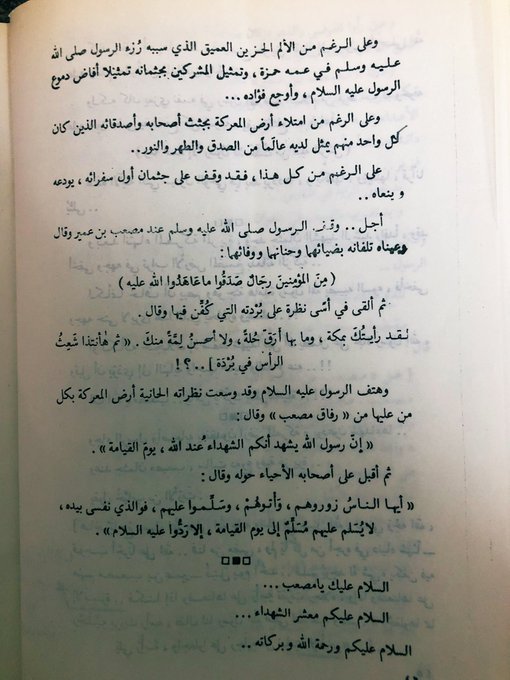 وعلى الرغم من الألم الحزين العميق الذي سببه رُزء الرسول صلى الله
عليه وسلم في عمه حمزة ، وتمثيل المشركين بجثمانه تمثيلاً أفاض دموع
الرسول عليه السلام ، وأوجع فؤاده ...
وعلى الرغم من امتلاء أرض المعركة بجثث أصحابه وأصدقائه الذين كان
كل واحد منهم يمثل لديه عالماً من الصدق والطهر والنور ..
على الرغم من كل هذا ، فقد وقف على جثمان أول سفرائه ، يودعه
و ينعاه ..
أجل .. وقف الرسول صلى الله عليه وسلم عند مصعب بن عمير وقال
وعيناه تلفانه بضيائهما وحنانهما ووفائهما :
( مِنَ المؤمِنينَ رِجَالٌ صَدَقُوا ما عَاهَدُوا الله عليه )
ثم ألقى في أسًى نظرة على بُرْدته التي كُفِّن فيها وقال .
لقد رأيتُكَ بمكة ، وما بها أرَقّ حُلةً ، ولا أحسنُ لِمَّةً منكَ . « ثم هأنتذا شَعِثُ
الرأس في بُرْدَة ] .. ؟ !
وهتف الرسول عليه السلام وقد وسعت نظراته الحانية أرض المعركة بكل
من عليها من « رفاق مصعب » وقال :
« إنّ رسول الله يشهد أنكم الشهداء عند الله ، يومَ القيامة » .
ثم أقبل على أصحابه الأحياء حوله وقال :
« أيها الناسُ زوروهم ، وَأتوهُمْ ، وسَلِّموا عليهم ، فوالذي نفسى بيده ،
لا يُسَلم عليهم مُسَلِّمٌ إلى يوم القيامة ، إلا رَدُّوا عليه السلام » .
السلام عليك يامصعب ...
السلام عليكم معشر الشهداء ...
السلام عليكم ورحمة الله و بركاته ..